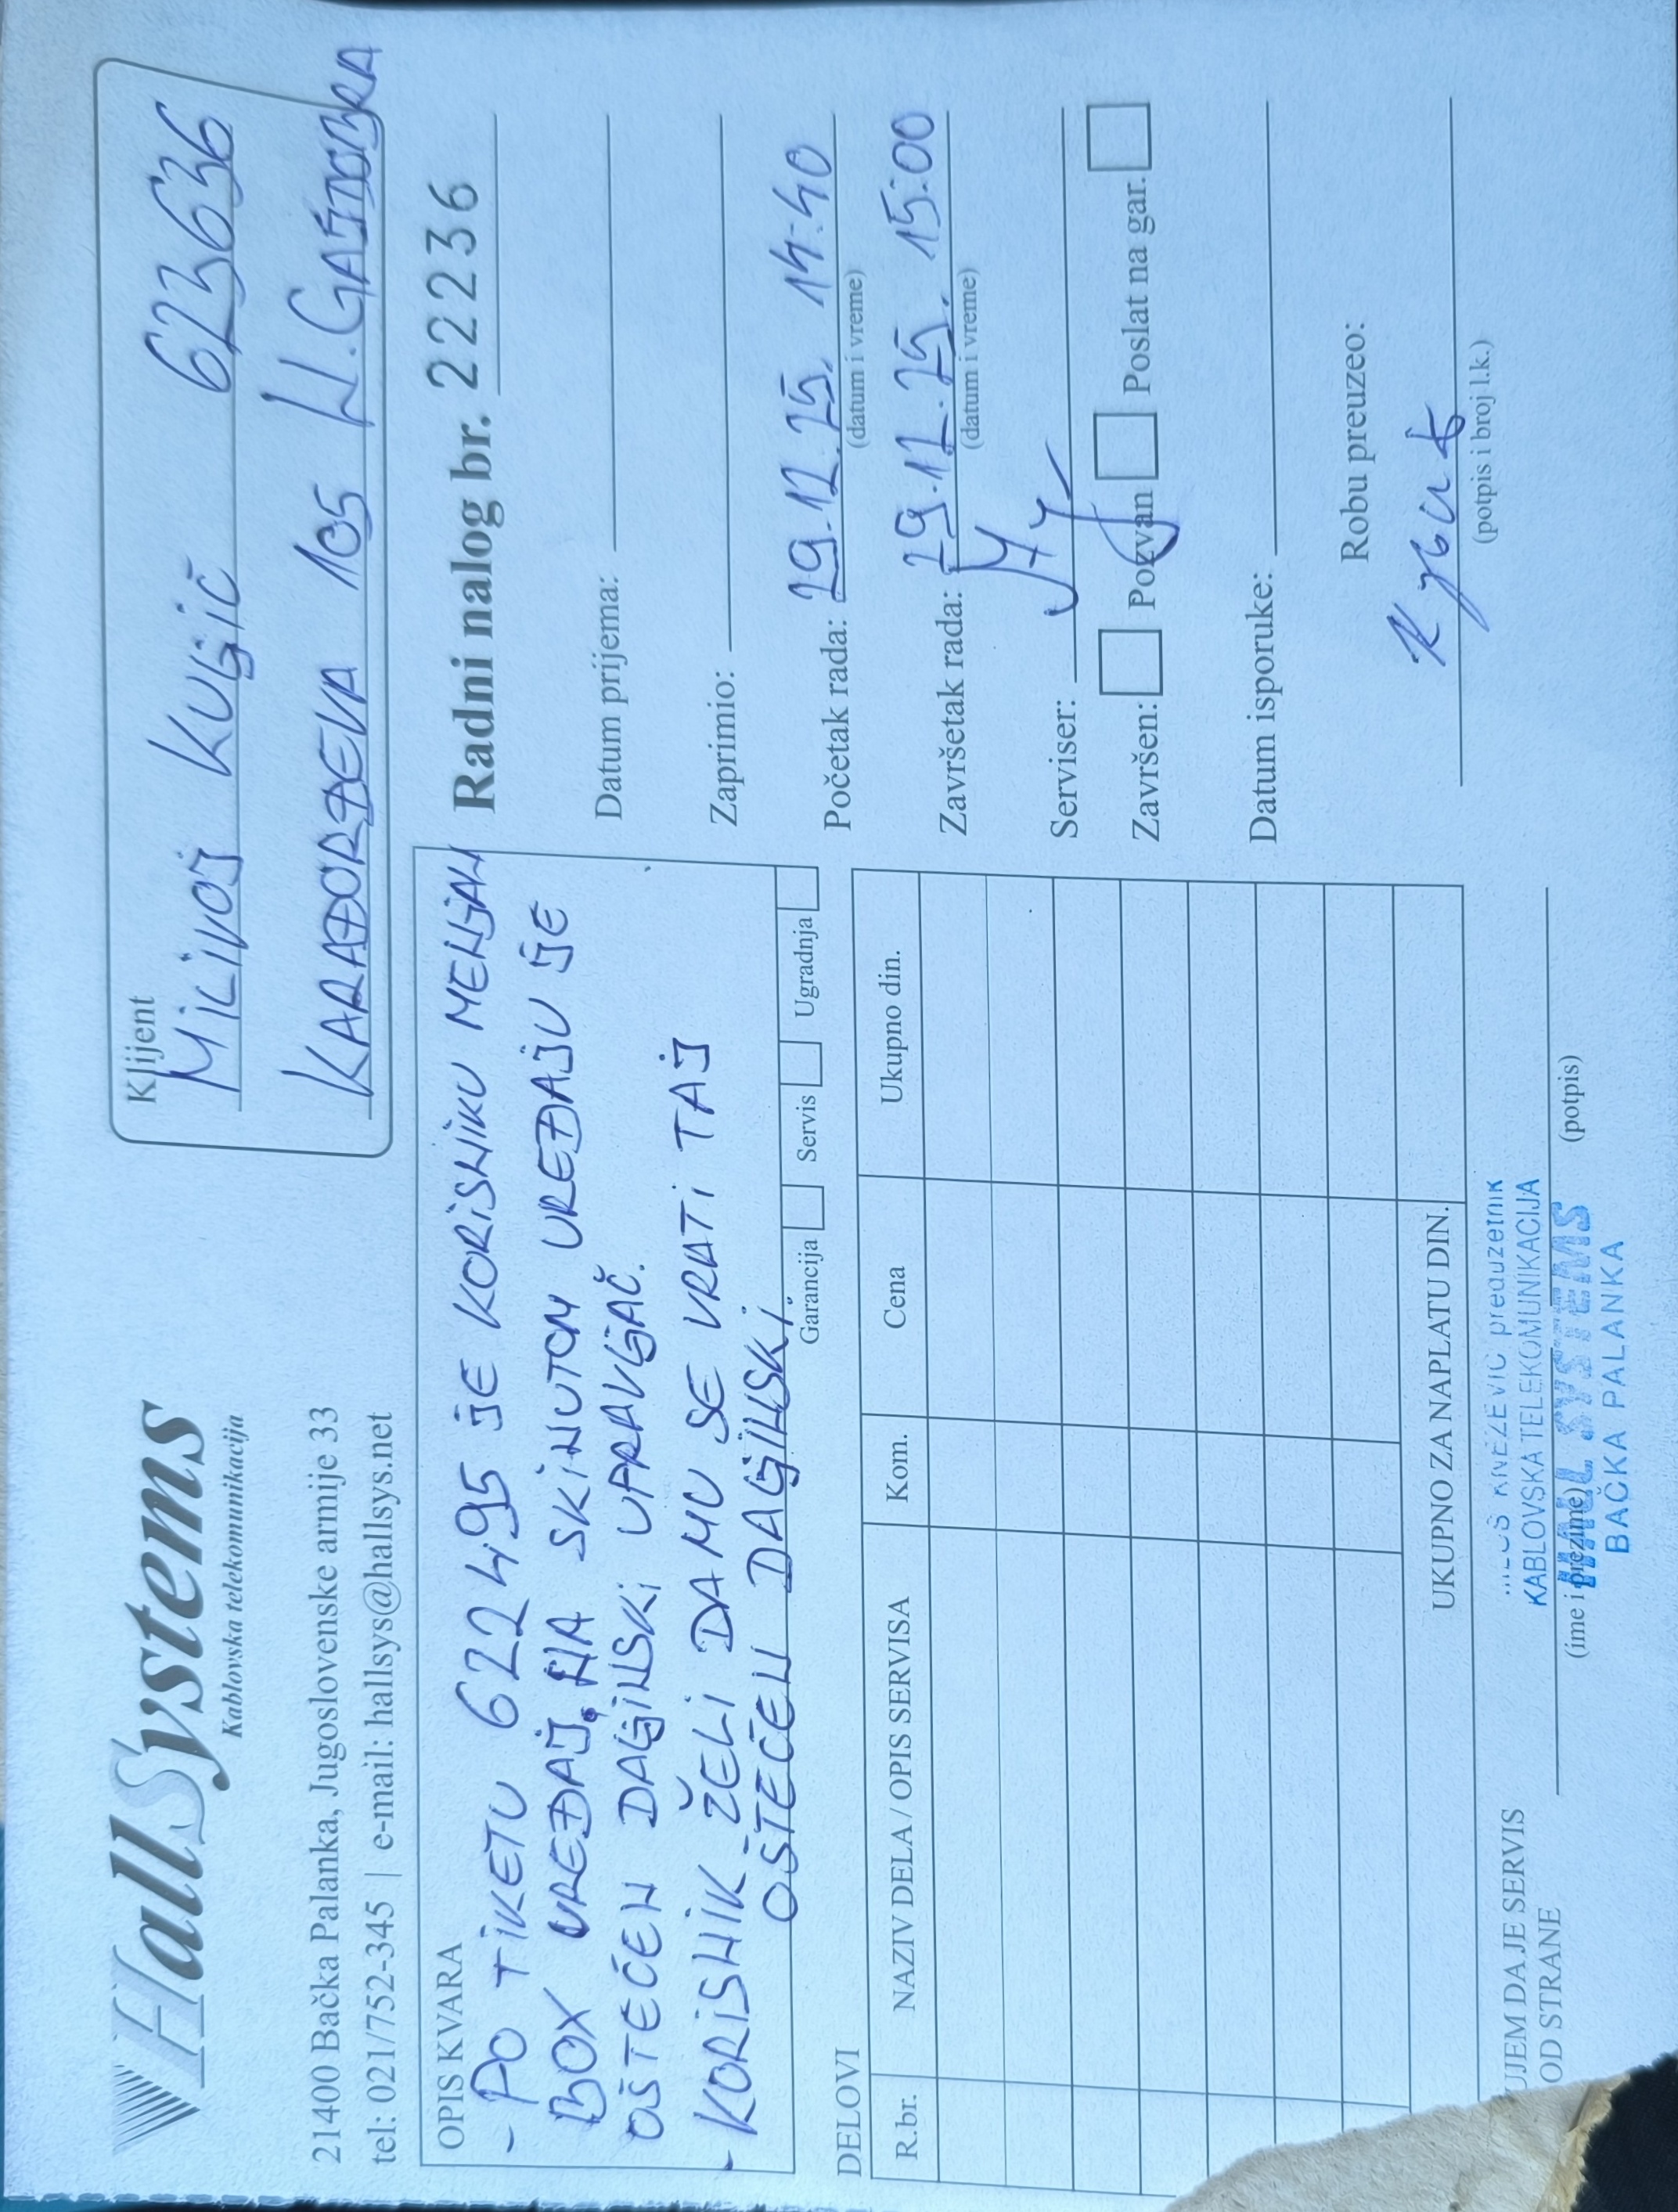 HallSystems
Kablovska telekomunikacija
21400 Bačka Palanka, Jugoslovenske armije 33
tel: 021/752-345 | e-mail: hallsys@hallsys.net
Klijent
MILIVOJ KULJIĆ 623636
KARAĐORĐEVA 105 N. GAJDOBRA
Radni nalog br. 22236
OPIS KVARA
- PO TIKETU 622495 JE KORISNIKU MENJAN
BOX UREĐAJ. NA SKINUTOM UREĐAJU JE
OŠTEĆEN DALJINSKI UPRAVLJAČ.
- KORISNIK ŽELI DA MU SE VRATI TAJ
OŠTEĆEN DALJINSKI.
Garancija Servis Ugradnja
Datum prijema:
Zaprimio:
Početak rada: 29.12.25. 14:40
(datum i vreme)
Završetak rada: 29.12.25. 15:00
(datum i vreme)
Serviser:
Završen: Pozvan Poslat na gar.
Datum isporuke:
Robu preuzeo:
(potpis i broj l.k.)
DELOVI
R.br. NAZIV DELA / OPIS SERVISA Kom. Cena Ukupno din.
UKUPNO ZA NAPLATU DIN.
UJEM DA JE SERVIS
OD STRANE
(ime i prezime) (potpis)
KNEŽEVIĆ preduzetnik
KABLOVSKA TELEKOMUNIKACIJA
HALL SYSTEMS
BAČKA PALANKA